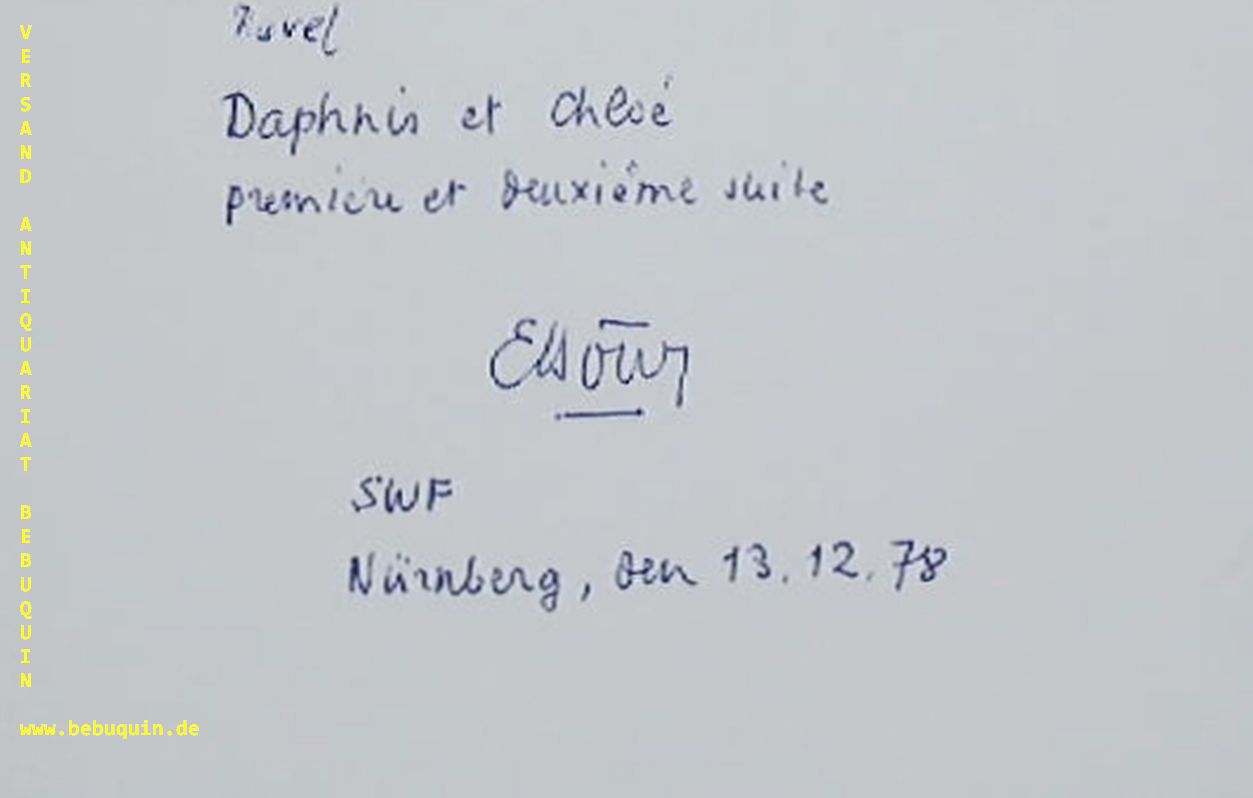 Ravel
Daphnis et Chloé
première et deuxième suite
SWF
Nürnberg, den 13.12.78
VERSAND ANTIQUARIAT BEBUQUIN
www.bebuquin.de